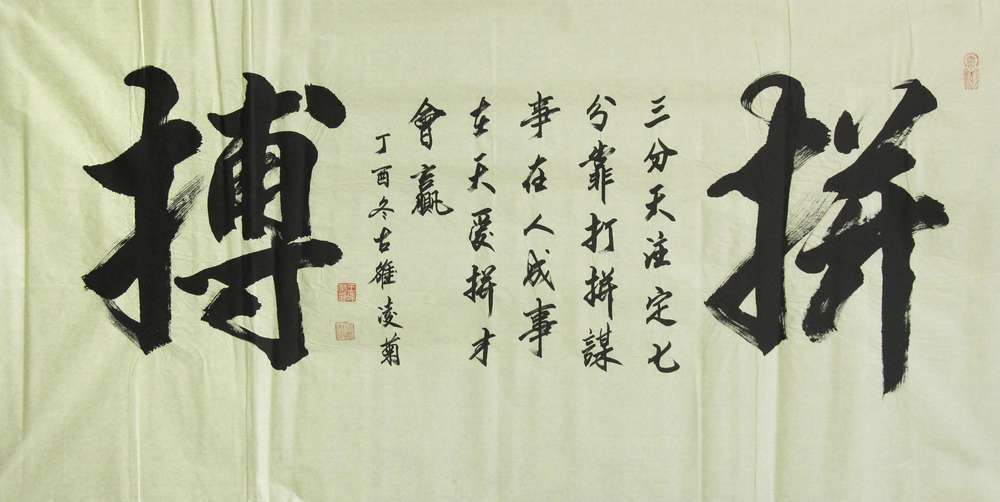 拼
三分天注定七
分靠打拼謀
事在人成事
在天愛拼才
會贏
丁酉冬古雒凌菊
搏